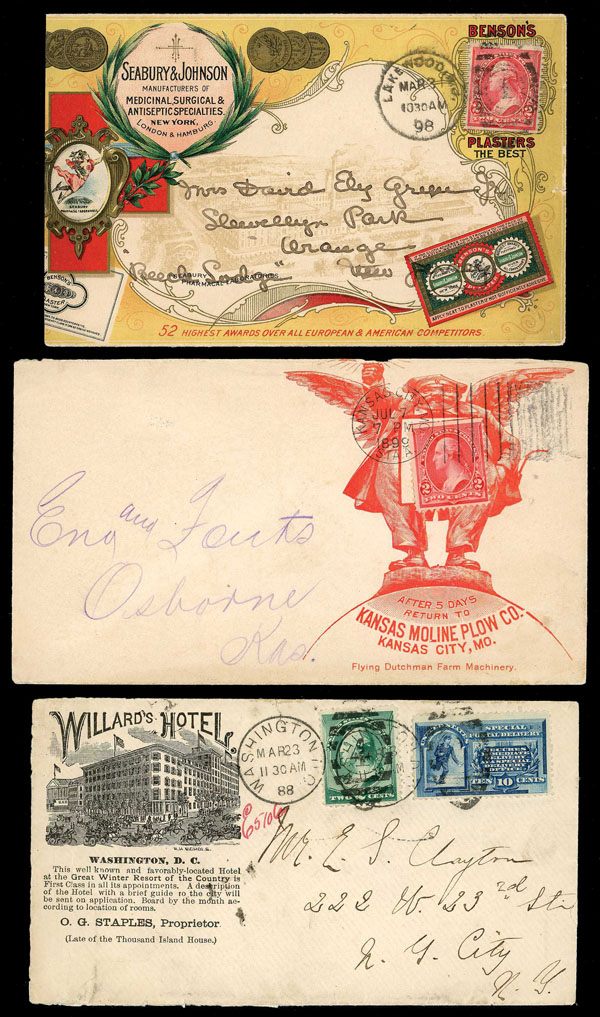 SEABURY & JOHNSON
MANUFACTURERS OF
MEDICINAL, SURGICAL &
ANTISEPTIC SPECIALTIES.
NEW YORK,
LONDON & HAMBURG.
BENSON'S
PLASTERS
THE BEST
LAKEWOOD, N.J.
MAR 2
10 30 AM
98
TWO CENTS
Mrs David Ely Green
Llewellyn Park
Orange
"Beech Lodge" New
SEABURY
PHARMACAL LABORATORIES
SEABURY
BENSON'S
PLASTER
BENSON'S
APPLY NEXT TO PLASTER IF NOT SUFFICIENTLY ADHESIVE
52 HIGHEST AWARDS OVER ALL EUROPEAN & AMERICAN COMPETITORS.
KANSAS CITY, MO.
JUL 7
7 PM
1899
STA. A
2 2
TWO CENTS
Eno and Fouts
Osborne
Kas.
AFTER 5 DAYS
RETURN TO
KANSAS MOLINE PLOW CO.
KANSAS CITY, MO.
Flying Dutchman Farm Machinery.
WILLARD'S HOTEL.
WASHINGTON, D. C.
This well known and favorably-located Hotel
at the Great Winter Resort of the Country is
First Class in all its appointments. A description
of the Hotel with a brief guide to the city will
be sent on application. Board by the month ac-
cording to location of rooms.
O. G. STAPLES, Proprietor.
(Late of the Thousand Island House.)
WASHINGTON, D.C.
MAR 23
11 30 AM
88
TWO CENTS
SPECIAL
POSTAL DELIVERY
SECURES
IMMEDIATE
DELIVERY
AT A SPECIAL
DELIVERY
OFFICE
TEN 10 CENTS
Mr. E. S. Clayton
222 W. 23rd Str
N. Y. City
N. Y.